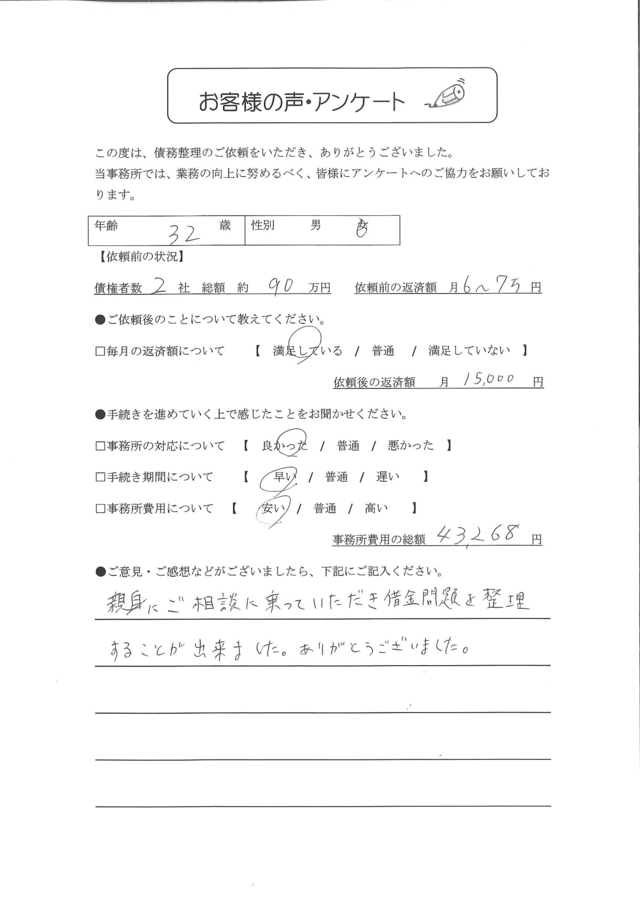 お客様の声・アンケート
この度は、債務整理のご依頼をいただき、ありがとうございました。
当事務所では、業務の向上に努めるべく、皆様にアンケートへのご協力をお願いしてお
ります。
年齢 32 歳 性別 男 女
【依頼前の状況】
債権者数 2 社 総額 約 90 万円 依頼前の返済額 月 6〜7万 円
●ご依頼後のことについて教えてください。
□毎月の返済額について 【 満足している / 普通 / 満足していない 】
依頼後の返済額 月 15,000 円
●手続きを進めていく上で感じたことをお聞かせください。
□事務所の対応について 【 良かった / 普通 / 悪かった 】
□手続き期間について 【 早い / 普通 / 遅い 】
□事務所費用について 【 安い / 普通 / 高い 】
事務所費用の総額 43,268 円
●ご意見・ご感想などがございましたら、下記にご記入ください。
親身にご相談に乗っていただき借金問題を整理
することが出来ました。ありがとうございました。